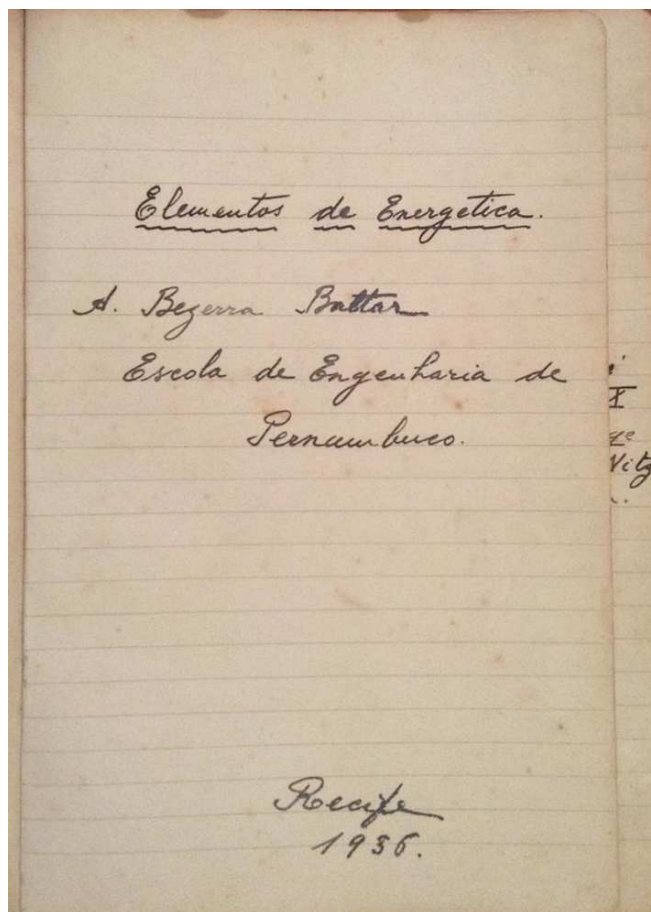 Elementos de Energetica.
A. Bezerra Baltar
Escola de Engenharia de
Pernambuco.
Recife
1936.